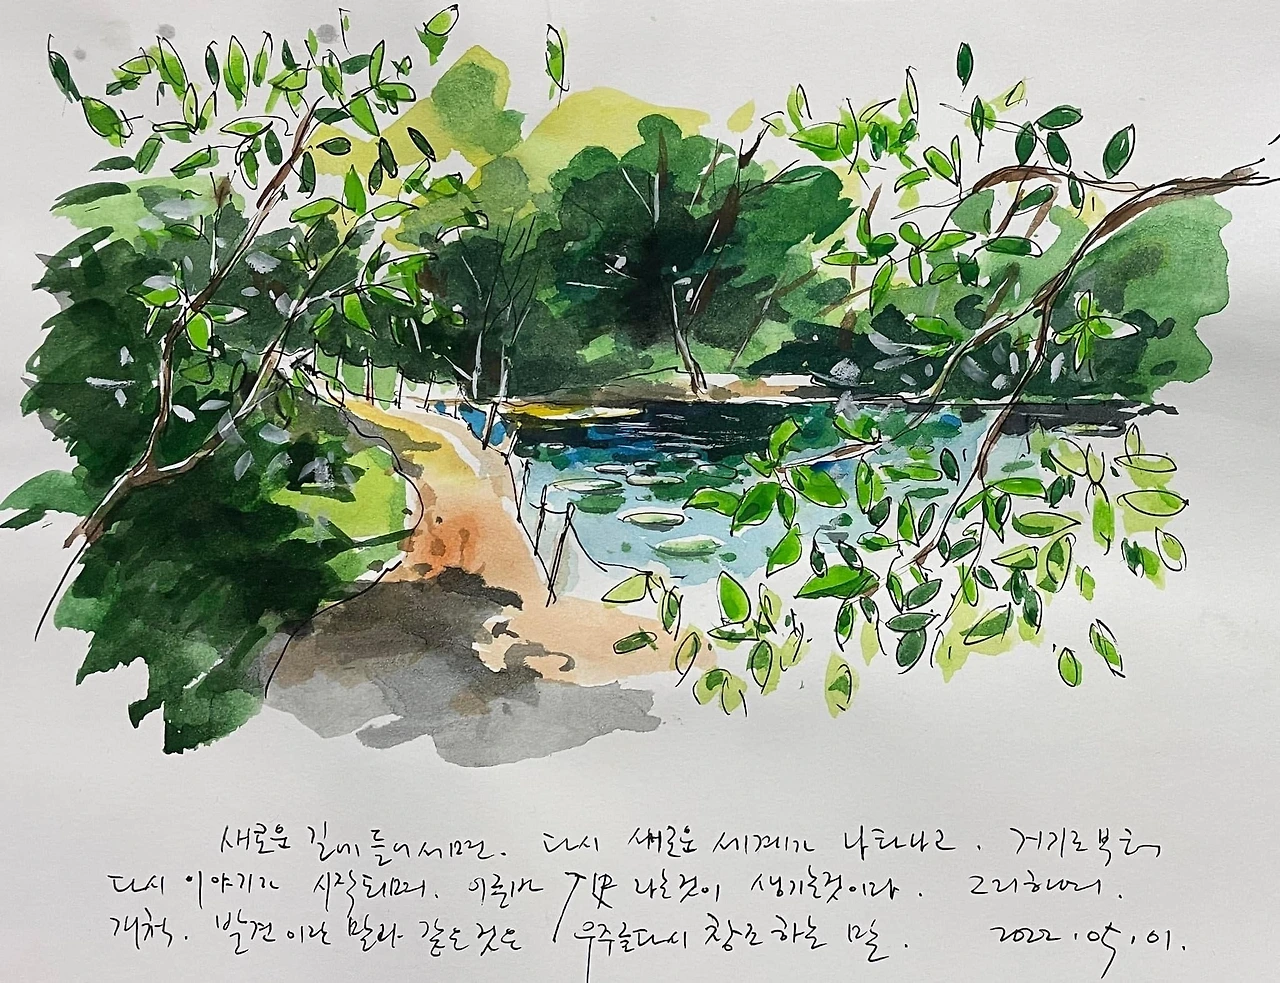 새로운 길에 들어서면. 다시 새로운 세계가 나타나고. 거기로부터
다시 이야기가 시작되며. 이른바 歷史 라는것이 생기는것이다. 그러하매.
개척. 발견이란 말과 같은것은 우주를다시 창조하는 말. 2022.05.01.